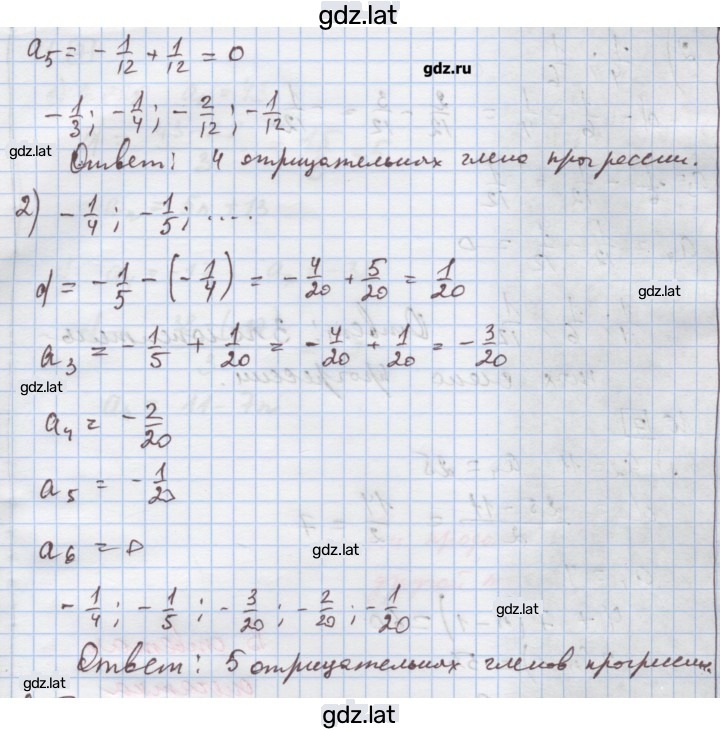 gdz.lat
a₅ = - 1/12 + 1/12 = 0
gdz.ru
- 1/3; - 1/4; - 2/12; - 1/12
gdz.lat
Ответ: 4 отрицательных члена прогрессии.
2) - 1/4; - 1/5; ....
d = - 1/5 - (- 1/4) = - 4/20 + 5/20 = 1/20
gdz.lat
a₃ = - 1/5 + 1/20 = - 4/20 + 1/20 = - 3/20
gdz.lat
a₄ = - 2/20
a₅ = - 1/20
a₆ = 0
gdz.lat
- 1/4; - 1/5; - 3/20; - 2/20; - 1/20
gdz.lat
Ответ: 5 отрицательных членов прогрессии.
gdz.lat
gdz.lat